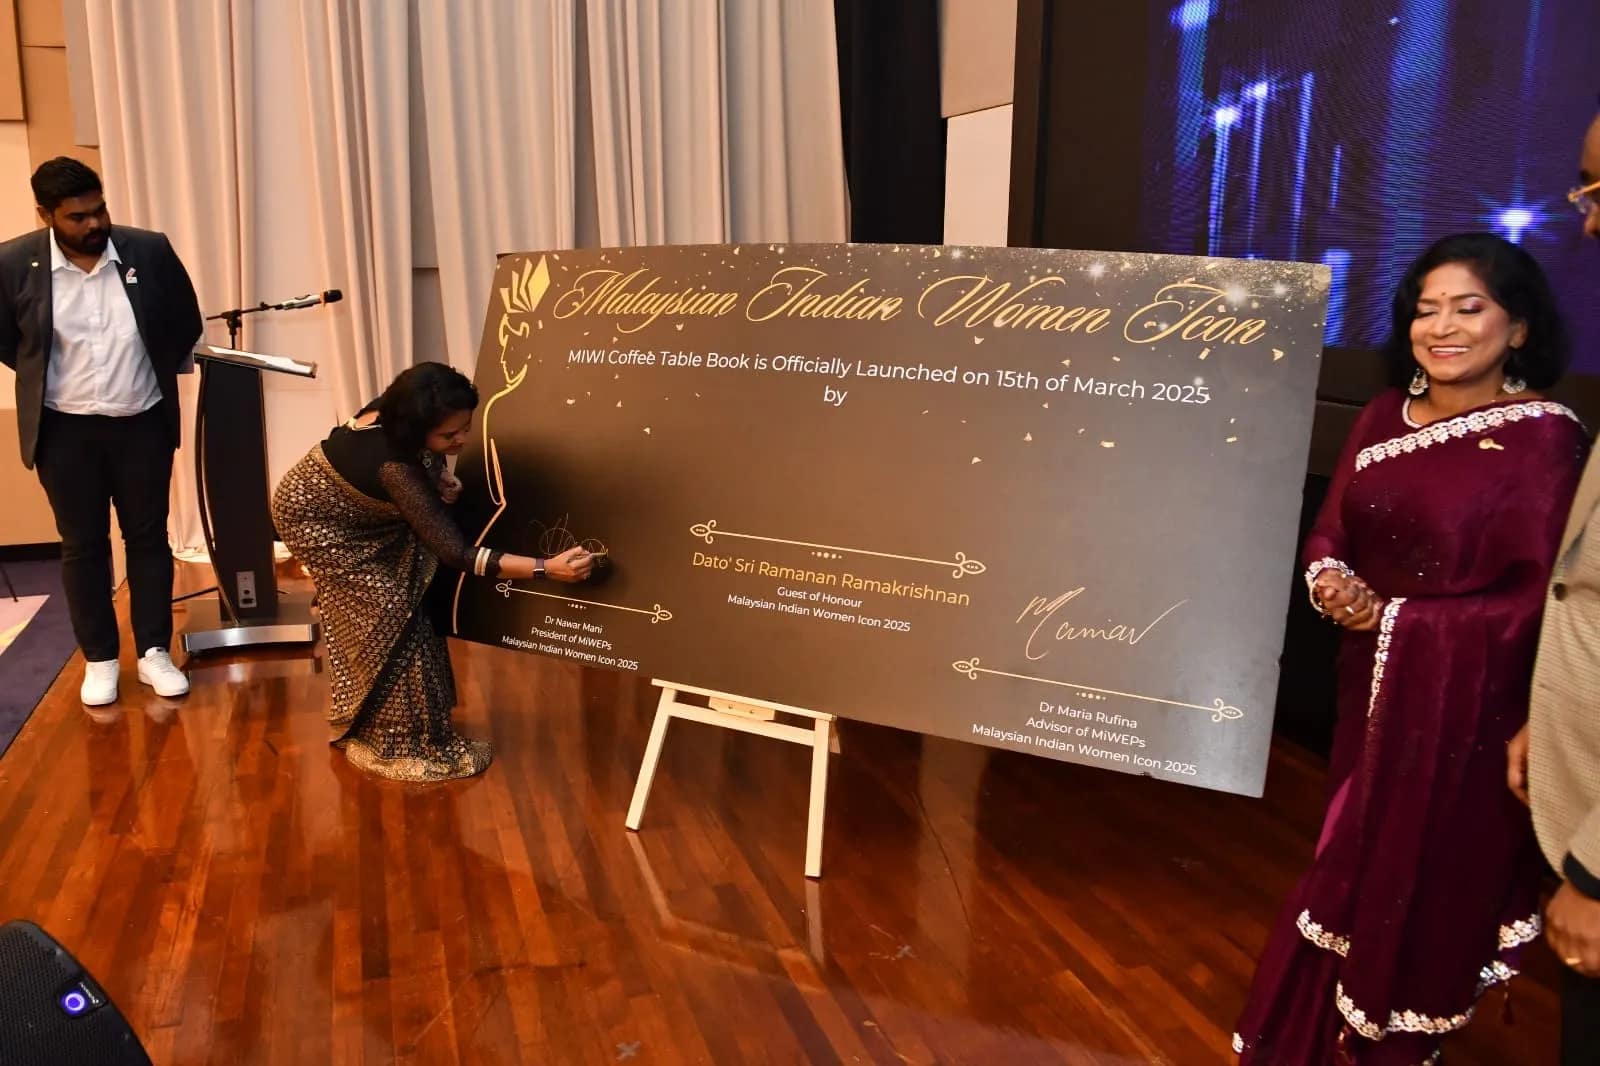 Malaysian Indian Women Icon
MIWI Coffee Table Book is Officially Launched on 15th of March 2025
by
Dato' Sri Ramanan Ramakrishnan
Guest of Honour
Malaysian Indian Women Icon 2025
Dr Nawar Mani
President of MiWEPs
Malaysian Indian Women Icon 2025
Dr Maria Rufina
Advisor of MiWEPs
Malaysian Indian Women Icon 2025